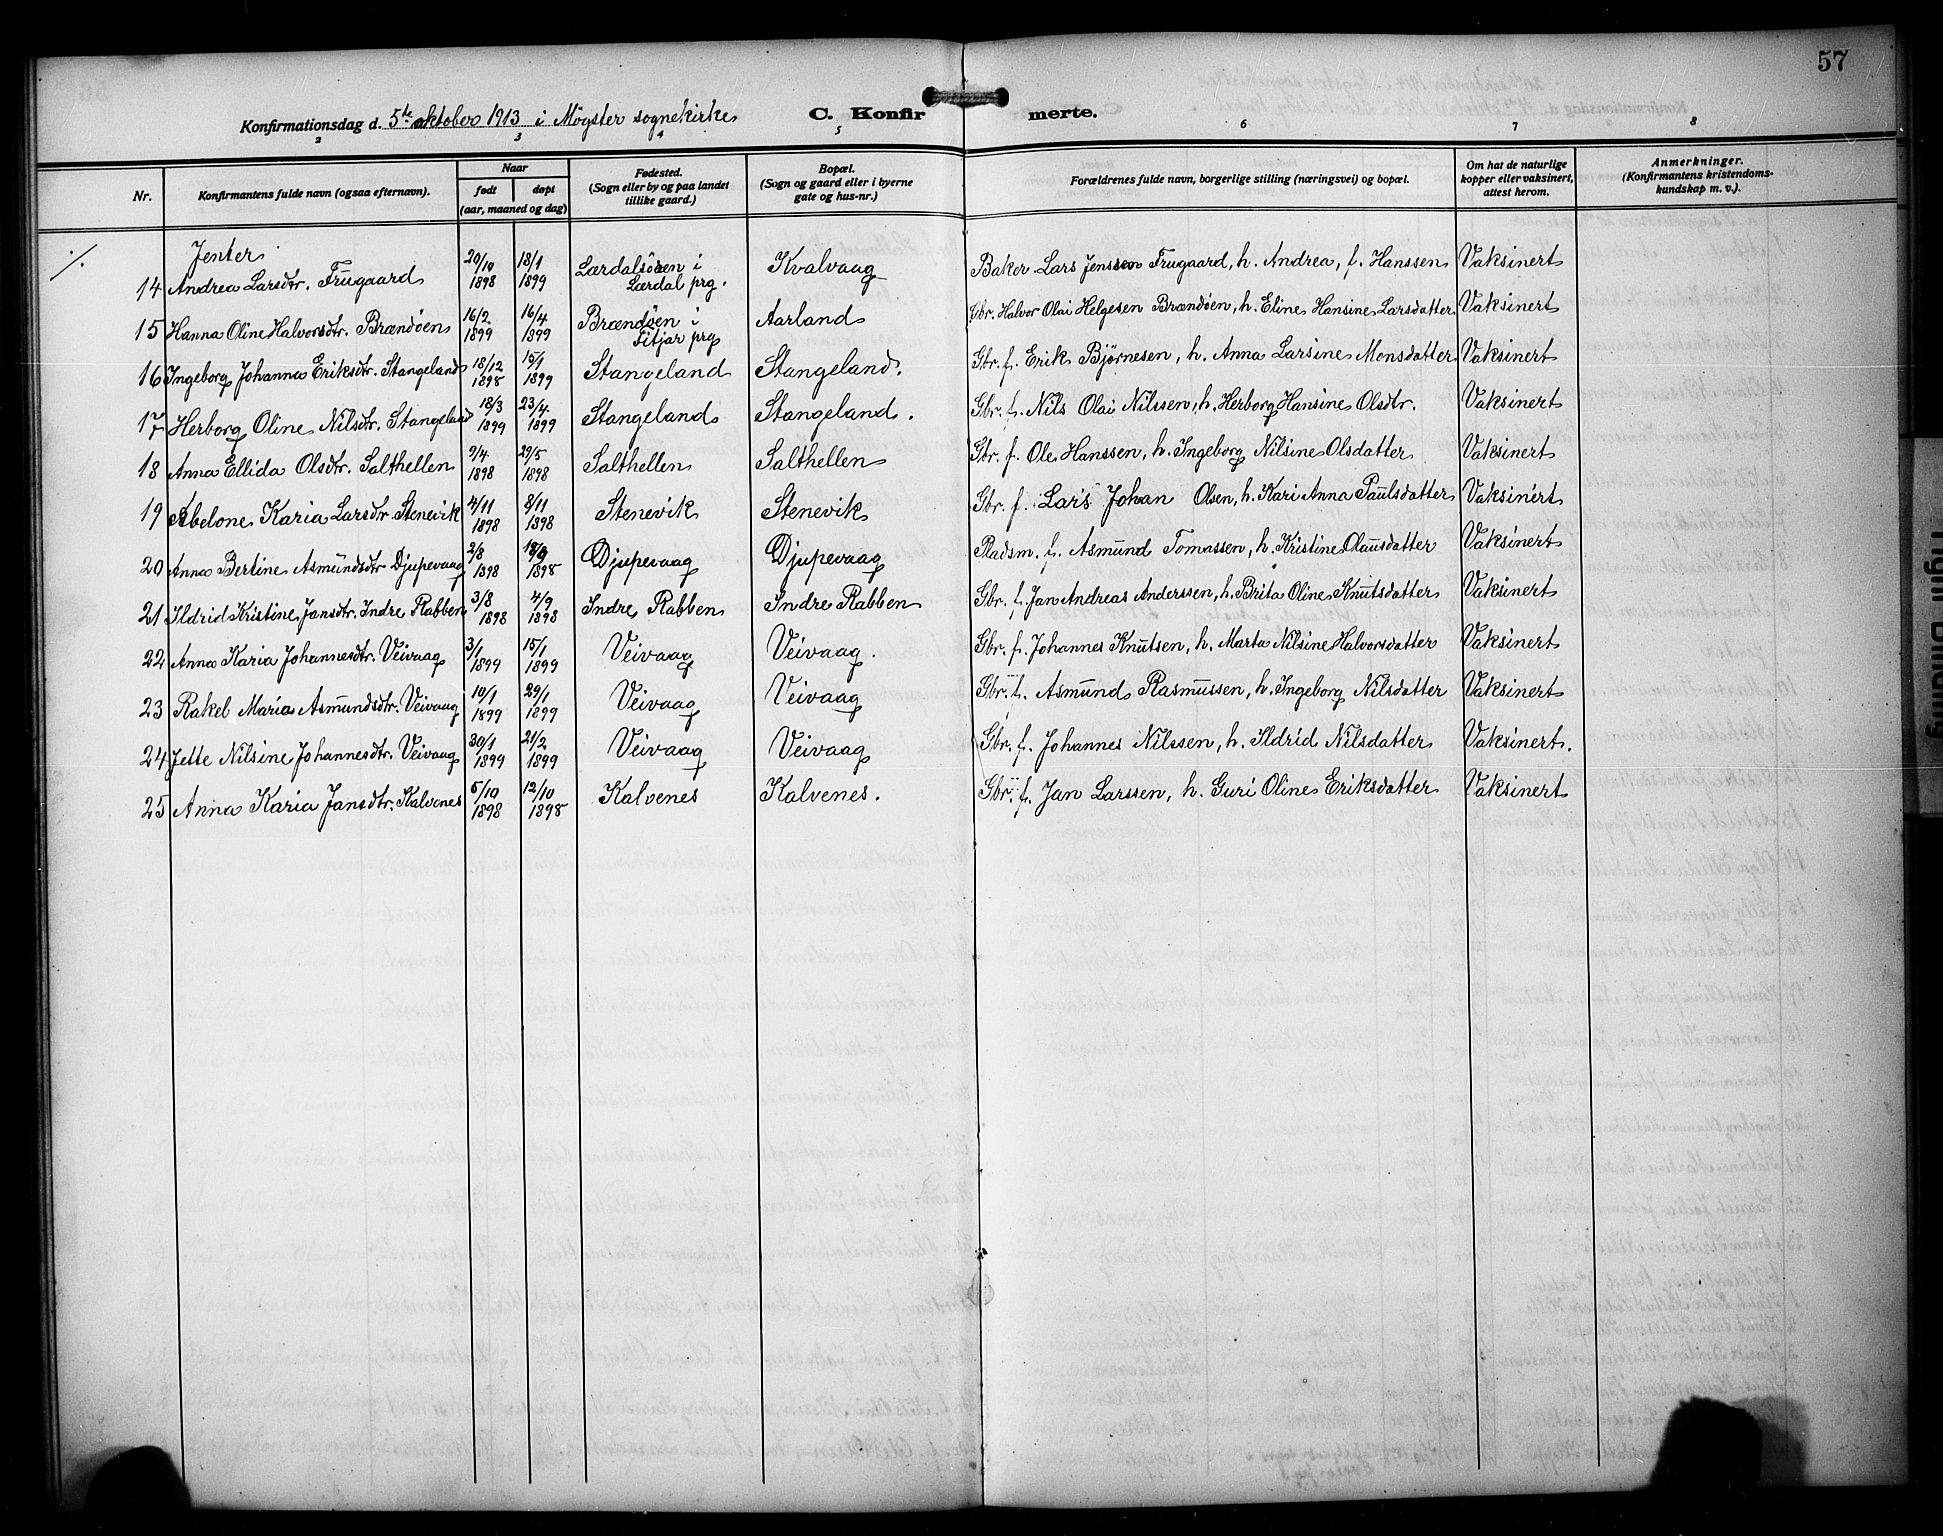 57
Konfirmationsdag d. 5te oktober 1913 i Møgster sognekirke C. Konfirmerte.
2 3 4 5 6 7 8
Nr. Konfirmantens fulde navn (ogsaa efternavn). Naar født døpt (aar, maaned og dag) Fødested. (Sogn eller by og paa landet tillike gaard.) Bopæl. (Sogn og gaard eller i byerne gate og hus-nr.) Forældrenes fulde navn, borgerlige stilling (næringsvei) og bopæl. Om hat de naturlige kopper eller vaksinert, attest herom. Anmerkninger. (Konfirmantens kristendomskundskap m. v.).
Jenter
14 Andrea Larsdtr. Frugaard 20/10 1898 18/1 1899 Lærdalsøren i Lærdal prg. Kvalvaag Baker Lars Jenssen Frugaard, h. Andrea, f. Hanssen Vaksinert
15 Hanna Oline Halvorsdtr. Brændøen 16/2 1899 16/4 1899 Brændøen i Fitjar prg Aarland Gbr. Halvor Olai Helgesen Brændøen, h. Eline Hansine Larsdatter Vaksinert
16 Ingeborg Johanna Eriksdtr. Stangeland 18/12 1898 15/1 1899 Stangeland Stangeland. Gbr. f. Erik Bjørnesen, h. Anna Larsine Monsdatter Vaksinert
17 Herborg Oline Nilsdtr. Stangeland 18/3 1899 23/4 1899 Stangeland Stangeland. Gbr. f. Nils Olai Nilssen, h. Herborg Hansine Olsdtr. Vaksinert
18 Anna Ellida Olsdtr. Salthellen 9/4 1898 29/5 1898 Salthellen Salthellen Gbr. f. Ole Hanssen, h. Ingeborg Nilsine Olsdatter Vaksinert
19 Abelone Karia Larsdtr Stenevik 4/11 1898 8/11 1898 Stenevik Stenevik Gbr. f. Lars Johan Olsen, h. Kari Anna Paulsdatter Vaksinert
20 Anna Bertine Asmundsdtr Djupevaag 2/8 1898 1898 Djupevaag Djupevaag Pladsm. f. Asmund Tomassen, h. Kristine Olausdatter Vaksinert
21 Ildrid Kristine Jansdtr. Indre Rabben 3/8 1898 4/9 1898 Indre Rabben Indre Rabben Gbr. f. Jan Andreas Anderssen, h. Brita Oline Knutsdatter Vaksinert
22 Anna Karia Johannesdtr. Veivaag 3/1 1899 15/1 1899 Veivaag Veivaag. Gbr. f. Johannes Knutsen, h. Marta Nilsine Halvorsdatter Vaksinert
23 Rakel Maria Asmundsdtr. Veivaag 10/1 1899 29/1 1899 Veivaag Veivaag Gbr. f. Asmund Rasmussen, h. Ingeborg Nilsdatter Vaksinert
24 Jette Nilsine Johannesdtr. Veivaag 30/1 1899 21/2 1899 Veivaag Veivaag Gbr. f. Johannes Nilssen, h. Ildrid Nilsdatter Vaksinert.
25 Anna Karia Jansdtr. Kalvenes 5/10 1898 12/10 1898 Kalvenes Kalvenes. Gbr. f. Jan Larssen, h. Guri Oline Eriksdatter Vaksinert